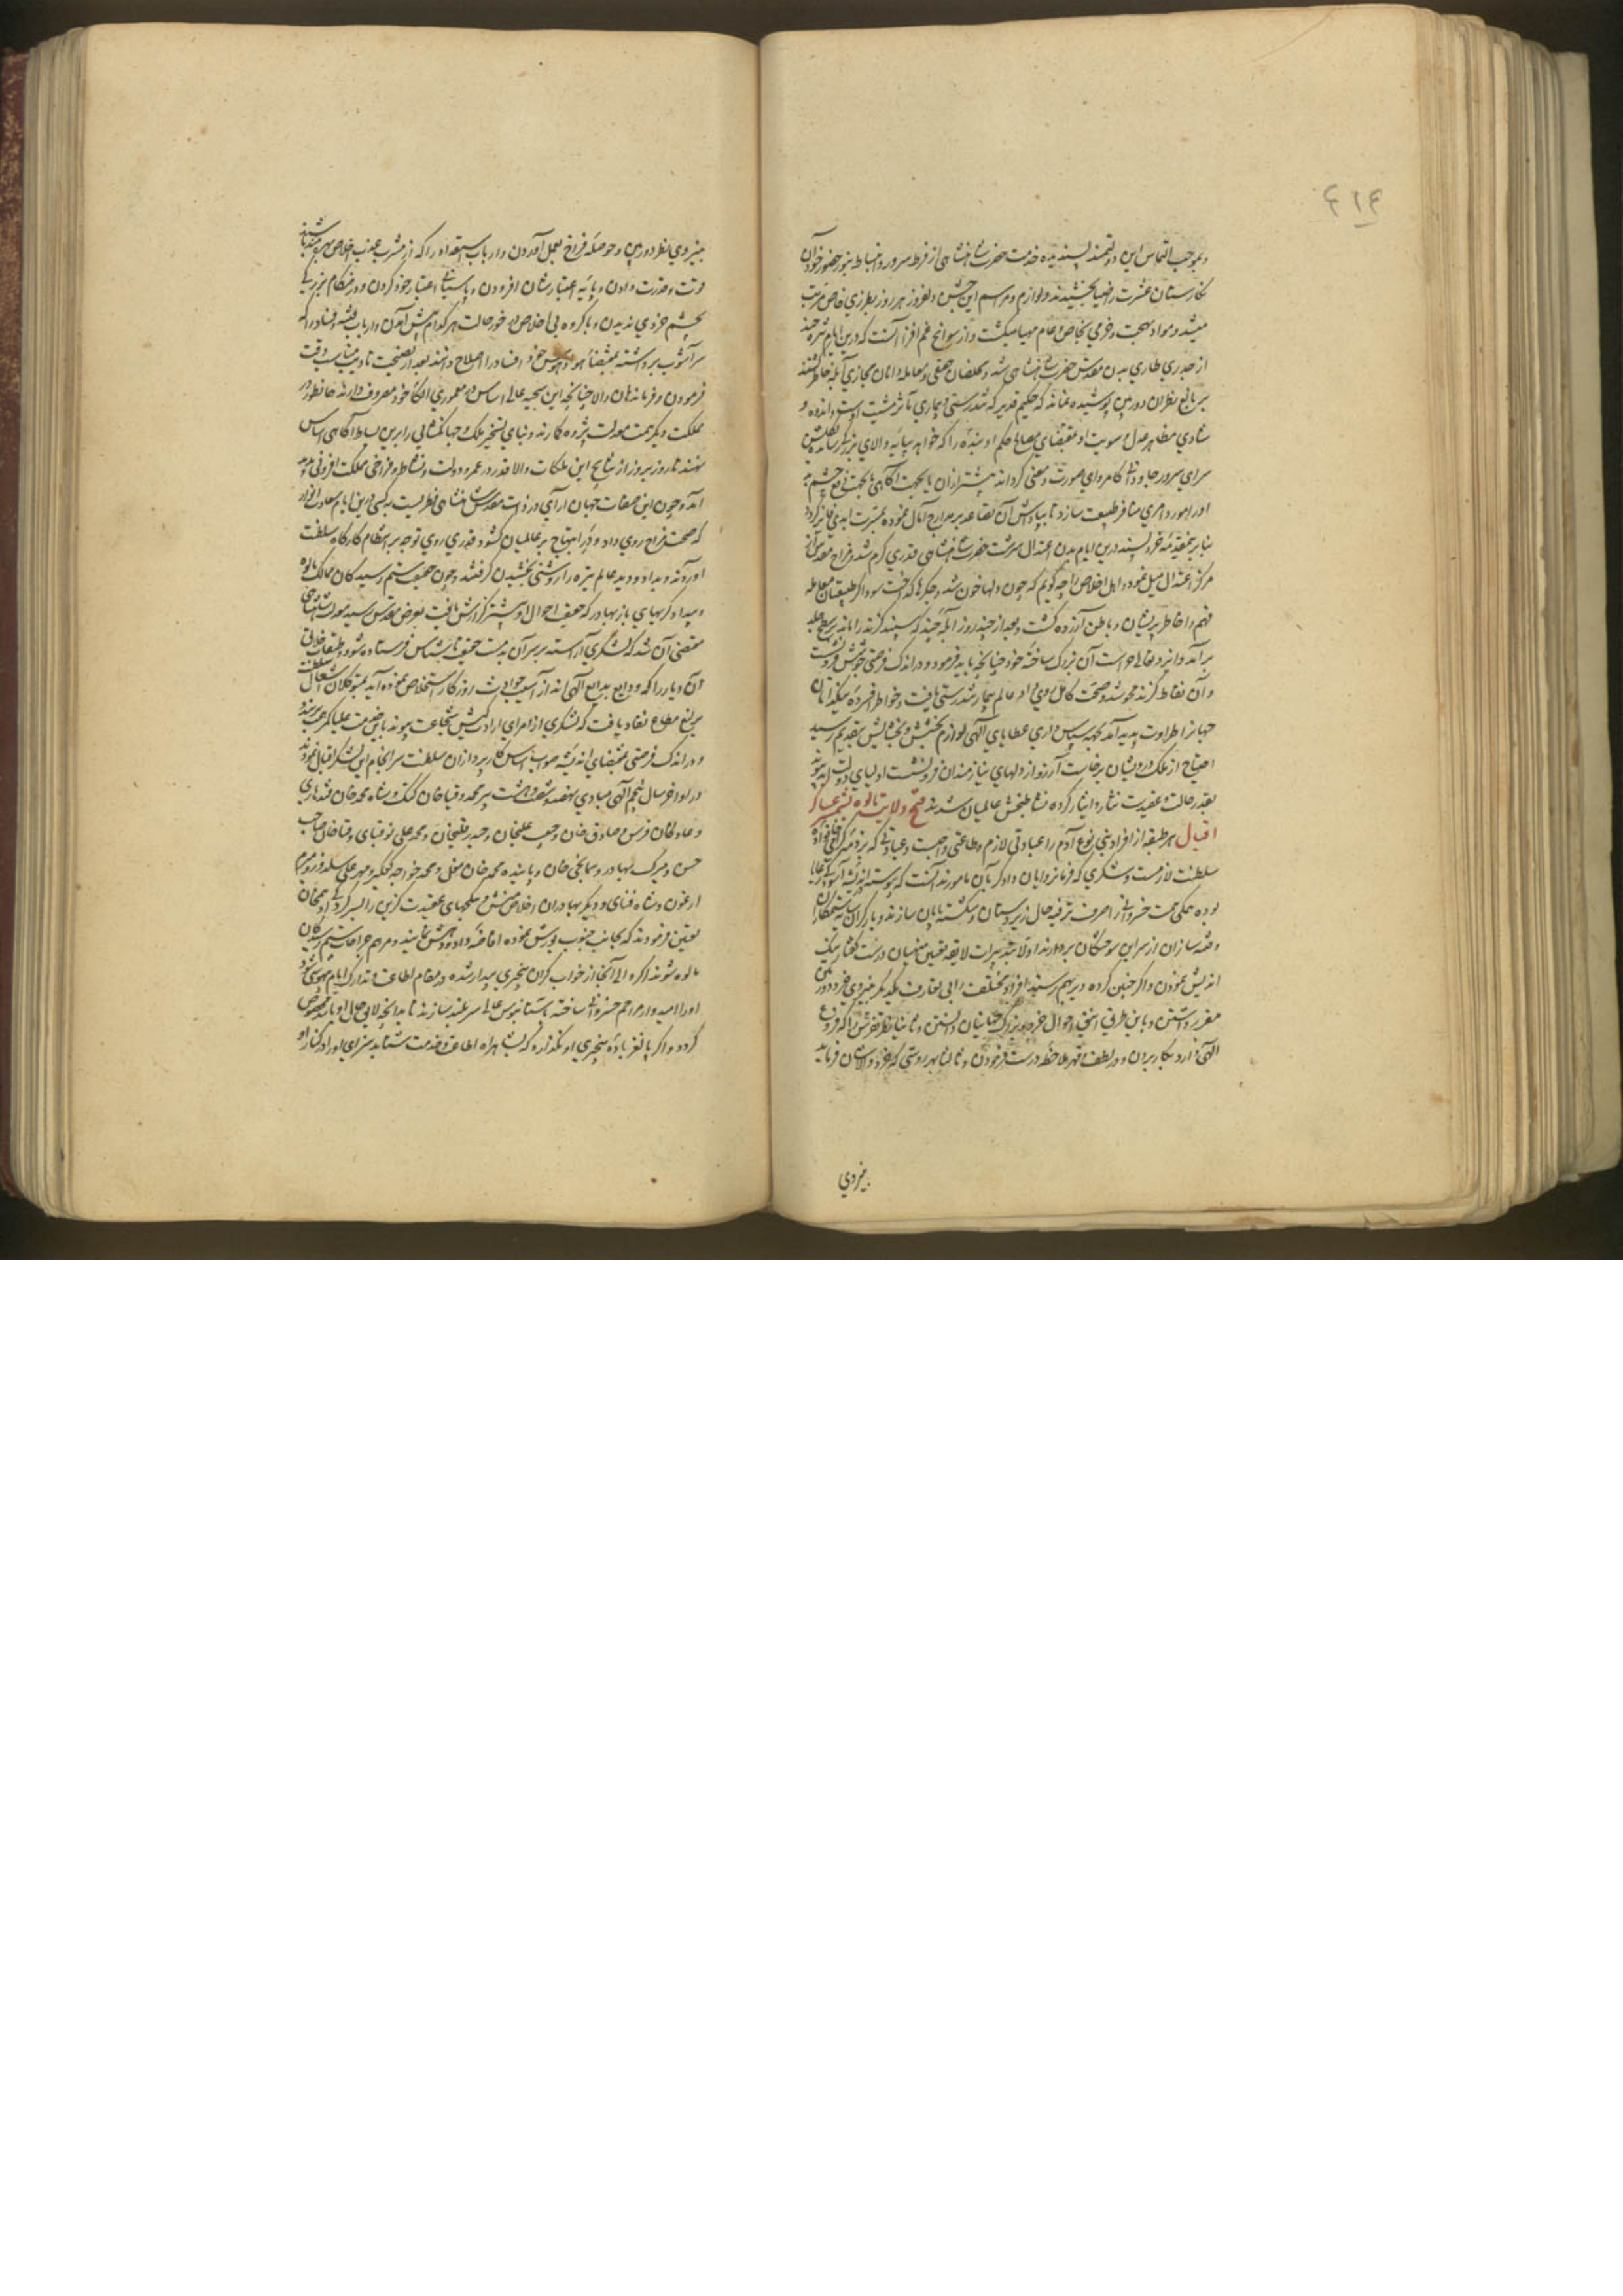 ۴۱۴
و بموجب التماس این دولتمند پسندیده خدمت حضرت شاهنشاهی از فرط سرور و انبساط بنور حضور خود آن
نگارستان عشرت را ضیا بخشیدند و لوازم و مراسم این جشن دلفروز هر روز بطرزی خاص مرتب
میشد و مواد بهجت و خرمی بخاص و عام مهیا میگشت و از سوانح غم افزا آنست که درین ایام بثره چند
از جدری طاری بدن مقدس حضرت شاهنشاهی شد و مخلصان حقیقی و معامله دانان مجازی آبله خاطر گشتند
بر بالغ نظران دوربین پوشیده نماند که حکیم قدیر که تندرستی و بیماری بآثر مشیت اوست و اندوه و
شادی مظاهر عدل و سویت او بمقتضای مصالح حکم او بنده را که خواهد بپایه والای بزرگی رساند و گلشن
سرای سرور جاودانی کامروای صورت و معنی گرداند پیشتر ازان یا بجهت آگاهی یا بجهت دفع چشم بد
او را مورد امری منافر طبیعت سازد تا بپاداش آن تصاعد بر مدارج آمال نموده بعشرت ابدی فایز گردد
بنابر مقدمه خرد پسند درین ایام بدن اعتدال سرشت حضرت شاهنشاهی قدری گرم شد و مزاج مقدس از
مرکز اعتدال میل نمود و اهل اخلاص را چه گویم که چون دلها خون شد و جگرها که سوخت سوداگر طبیعتان معامله
فهم را خاطر پریشان و باطن آزرده گشت و بعد از چند روز آبله چند که سپند گزند را ماند بر سطح جلد
برآمد و ایزد تعالی حراست آن بزرگ ساخته خود چنانچه باید فرمود و در اندک فرصتی جوشش فرونشست
و آن نقاط گزند محو شد و صحت کامل روی داد عالم بیمار تندرستی یافت و خواطر افسرده نیکذاتان
جهانرا طراوت پدید آمد بجهت سپاس داری عطایای الهی لوازم بخشش و بخشایش بتقدیم رسید
احتیاج از ملک درویشان برخاست آرزو از دلهای نیازمندان فرونشست اولیای دولت ابد پیوند
بقدر حالت و عقیدت نثار و ایثار کرده نشاط بخش عالمیان شدند فتح ولایت مالوه بتسخیر عساکر
اقبال هر طبقه از افراد بنی نوع آدم را عبادتی لازم و طاعتی واجبست و عبادتی که بر ذمه گرامی نژاد
سلطنت لازمست و شکری که فرمانروایان دادگر بآن مامورند آنست که پیوسته اندیشه آسودگی برایا
بوده همگی همت خسروانه را مصروف ترفیه حال زیردستان و شکسته پایان سازند و بار گران ستمکاران
و فتنه سازان از سر این سوختگان بردارند اولا بتدبیرات لایقه تعیین منهیان درست گفتار نیک
اندیش نمودن و اگر چنین گرده دیر بهم رسند افراد مختلف را بی تعارف یکدیگر بنیروی خرد دوربین
مقرر داشتن و باین طرق انیق احوال خرد و بزرگ جهانیان دانستن و ثانیا بنظر تفرش را که فروغ
الهی دارد بکار بردن و در لطف و قهر ملاحظه درست فرمودن و ثالثا بهر روشی که خرد والاشان فرماید
بنیروی
بنیروی نظر دوربین و حوصله فراخ بعمل آوردن و ارباب استعداد را که از مشرب عذب اخلاص بهره مند باشند
قوت و قدرت دادن و پایه اعتبار شان افزودن و پاسبانی اعتبار خود کردن و در هنگام بزرگی
بچشم خردی ندیدن و با گروه بی اخلاص در خور حالت هر کدام پیش آمدن و ارباب فتنه و فساد را که
سر آشوب برداشته بمقتضای هوا و هوس خود افساد را اصلاح دانند بعد از نصیحت تادیب مناسب وقت
فرمودن و فرماندهان والا چنانچه این سجیه عالی اساس در معموری الکای خود مصروف دارند همانطور در
مملکت دیگر همت معدلت پژوه کارند و بنای تسخیر ملک و جهانگشائی را برین بساط آگاهی اساس
نهند تا روز بروز از نتایج این ملکات والا قدر در عمر و دولت و نشاط و فراخی مملکت افزونی پدید
آید و چون این صفات جهان آرای در ذات مقدس شاهنشاهی فطریست نه کسبی درین ایام سعادت انوار
که صحت مزاج روی داد و در ابتهاج بر عالمیان گشود قدری روی توجه بر انتظام کارگاه سلطنت
آوردند و بداد و دید عالم تیره را روشنی بخشیدن گرفتند و چون حقیقت ستم رسیدگان ممالک مالوه
و بیدادگریهای باز بهادر که حقیقت احوال او پیشتر گزارش یافت بعرض مقدس رسید معدلت شاهنشاهی
مقتضی آن شد که لشکری آراسته بر سر آن بدمست حقیقت ناشناس فرستاده شود و طبقات خلایق
آن دیار را که ودایع بدایع الهی اند از آسیب حوادث روزگار استخلاص نموده آید بمتوکلان اشغال سلطنت
یرلیغ مطاع نفاذ یافت که لشکری از امرای ارادت کیش شجاعت پیوند باین خدمت علیا کمر همت بربندند
و در اندک فرصتی بمقتضای اندیشه صواب اساس کارپردازان سلطنت سرانجام این لشکر اقبال نمودند
در اواخر سال پنجم الهی مبادی نهصد و شصت و هشت پیر محمد و قیاخان گنگ و شاه محمد خان قندهاری
و عادلخان فرس و صادق خان و حبیب علیخان و حیدر قلیخان و محمد علی توقبای و قیاخان صاحب
حسن و میرک بهادر و سمانجی خان و پاینده محمد خان مغل و محمد خواجه کشتگیر و مهر علی سلدوز و میرم
ارغون و شاه فنائی و دیگر بهادران اخلاص منش و یکجهتان عقیدت گزین را بسرکردگی ادهم خان
تعیین فرمودند که بجانب جنوب یورش نموده افاضه داد و دهش نمایند و مرهم جراحات ستم رسیدگان
مالوه شوند اگر والی آنجا از خواب گران بیخبری بیدار شده در مقام اطاعت و تدارک ایام بیهوشی شود
او را امیدوار مراحم خسروانی ساخته بآستانبوس عالی سربلند سازند تا بدانچه لایق حال او باشد مخصوص
گردد و اگر بالغر باده بیخبری او نگذارد که بشاهراه اطاعت و خدمت شتابد سزای او را در کنار او